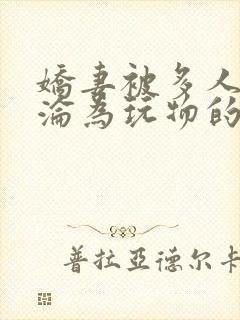 嬌妻被多人
淪為玩物的
普拉亞德尔卡